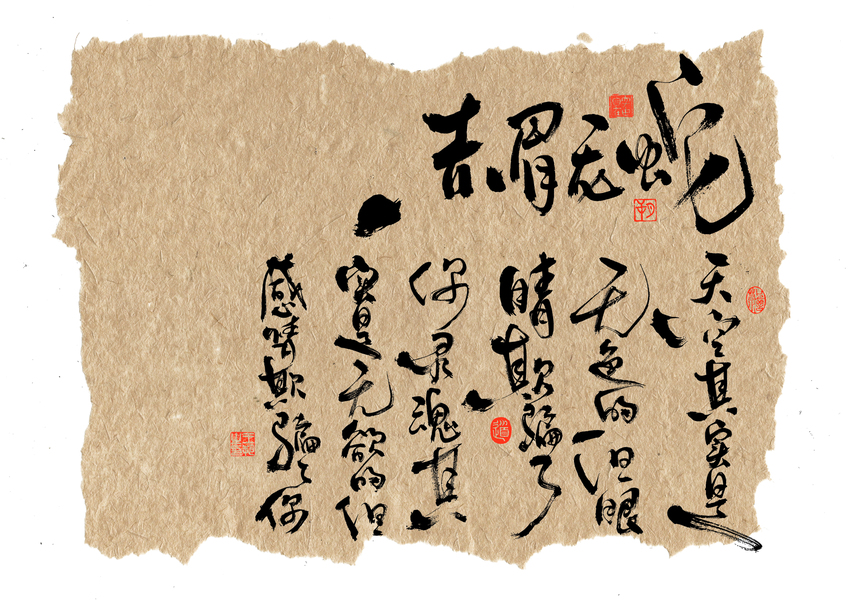 蛇无谓吉
天空其实是
无色的但眼
睛欺骗了
你灵魂其
实是无欲的但
感情欺骗了你